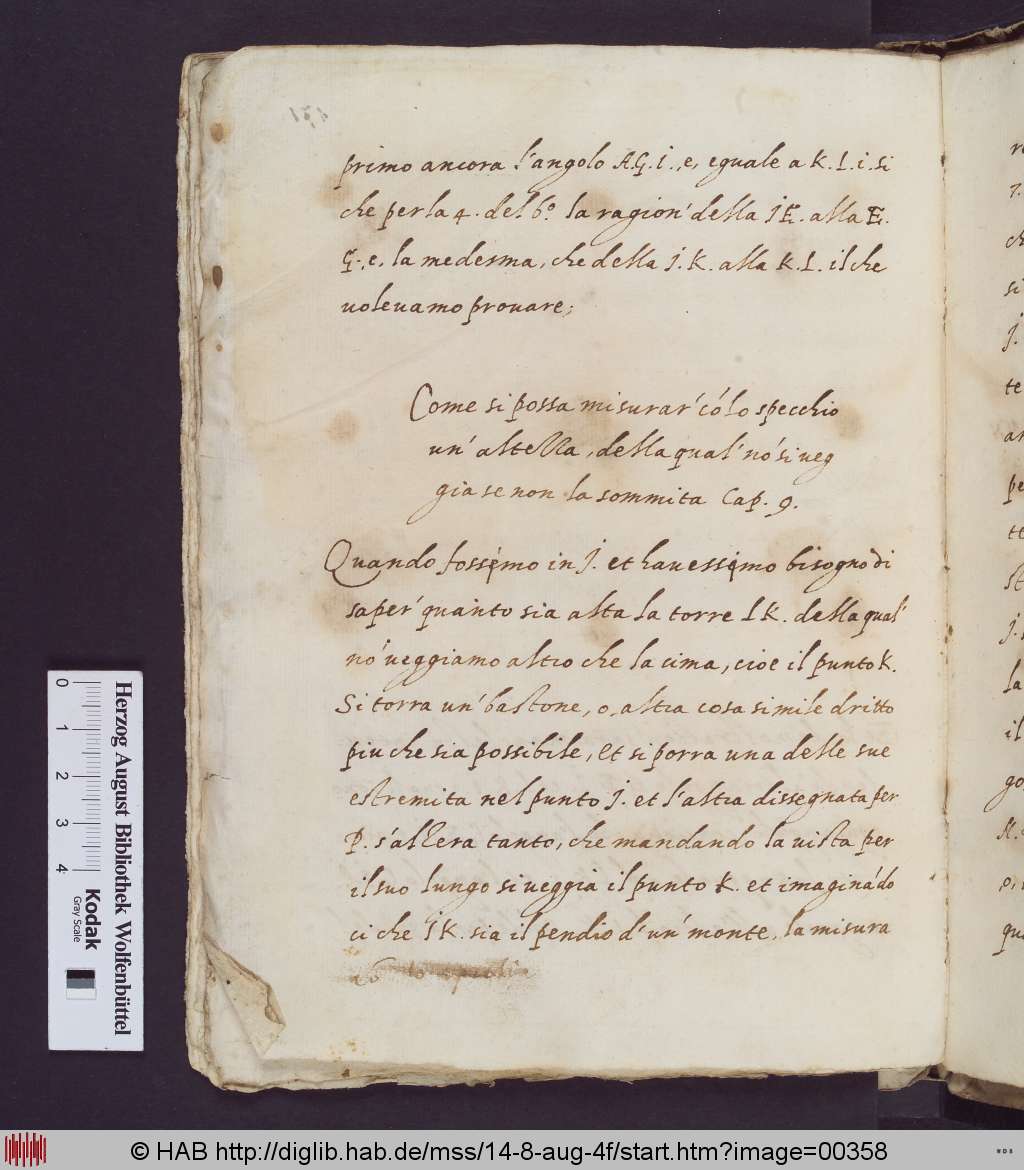 primo ancora l'angolo AG. I., e, eguale a K. L. i. si
che per la 4. del 6.º la ragion' della I E. alla E.
G., e, la medesma, che della I. K. alla K. L. il che
uolevamo provare;
Come si possa misurar' cõ lo specchio
un' altezza, della qual' nõ si veg
gia se non la sommita Cap. 9.
Quando fossimo in I. et havessimo bisogno di
saper' quanto sia alta la torre L K. della qual'
nõ veggiamo altro che la cima, cioe il punto K.
Si torra un' bastone, o, altra cosa simile dritto
piu che sia possibile, et si porra una delle sue
estremita nel punto I. et l'altra dissegnata per
P. s'alzera tanto, che mandando la vista per
il suo lungo si veggia il punto K. et imaginãdo
ci che I K. sia il pendio d'un' monte, la misura
Herzog August Bibliothek Wolfenbüttel
Kodak
Gray Scale
0 1 2 3 4
© HAB http://diglib.hab.de/mss/14-8-aug-4f/start.htm?image=00358